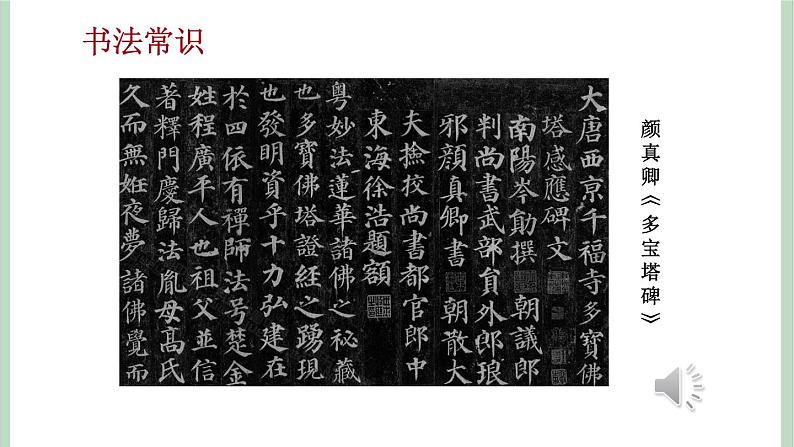 书法常识
大唐西京千福寺多寶佛
塔感應碑文
南陽岑勛撰 朝議郎
判尚書武部員外郎琅
邪顏真卿書 朝散大
夫撿挍尚書都官郎中
東海徐浩題額
粵妙法蓮華諸佛之秘藏
也多寶佛塔證經之踴現
也發明資乎十力弘建在
於四依有禪師法号楚金
姓程廣平人也祖父並信
著釋門慶歸法胤母高氏
久而無姙夜夢諸佛覺而
颜真卿《多宝塔碑》